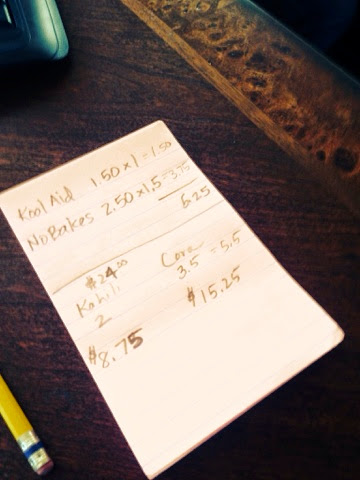 Kool Aid 1.50 x 1 = 1.50
No Bakes 2.50 x 1.5 = 3.75
5.25
$24.00
Kahili Cora
2 3.5 = 5.5
$8.75 $15.25